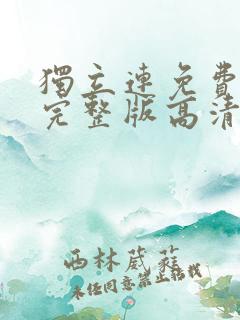 獨立連免費
完整版高清
西林葳蕤
未经同意禁止搭载